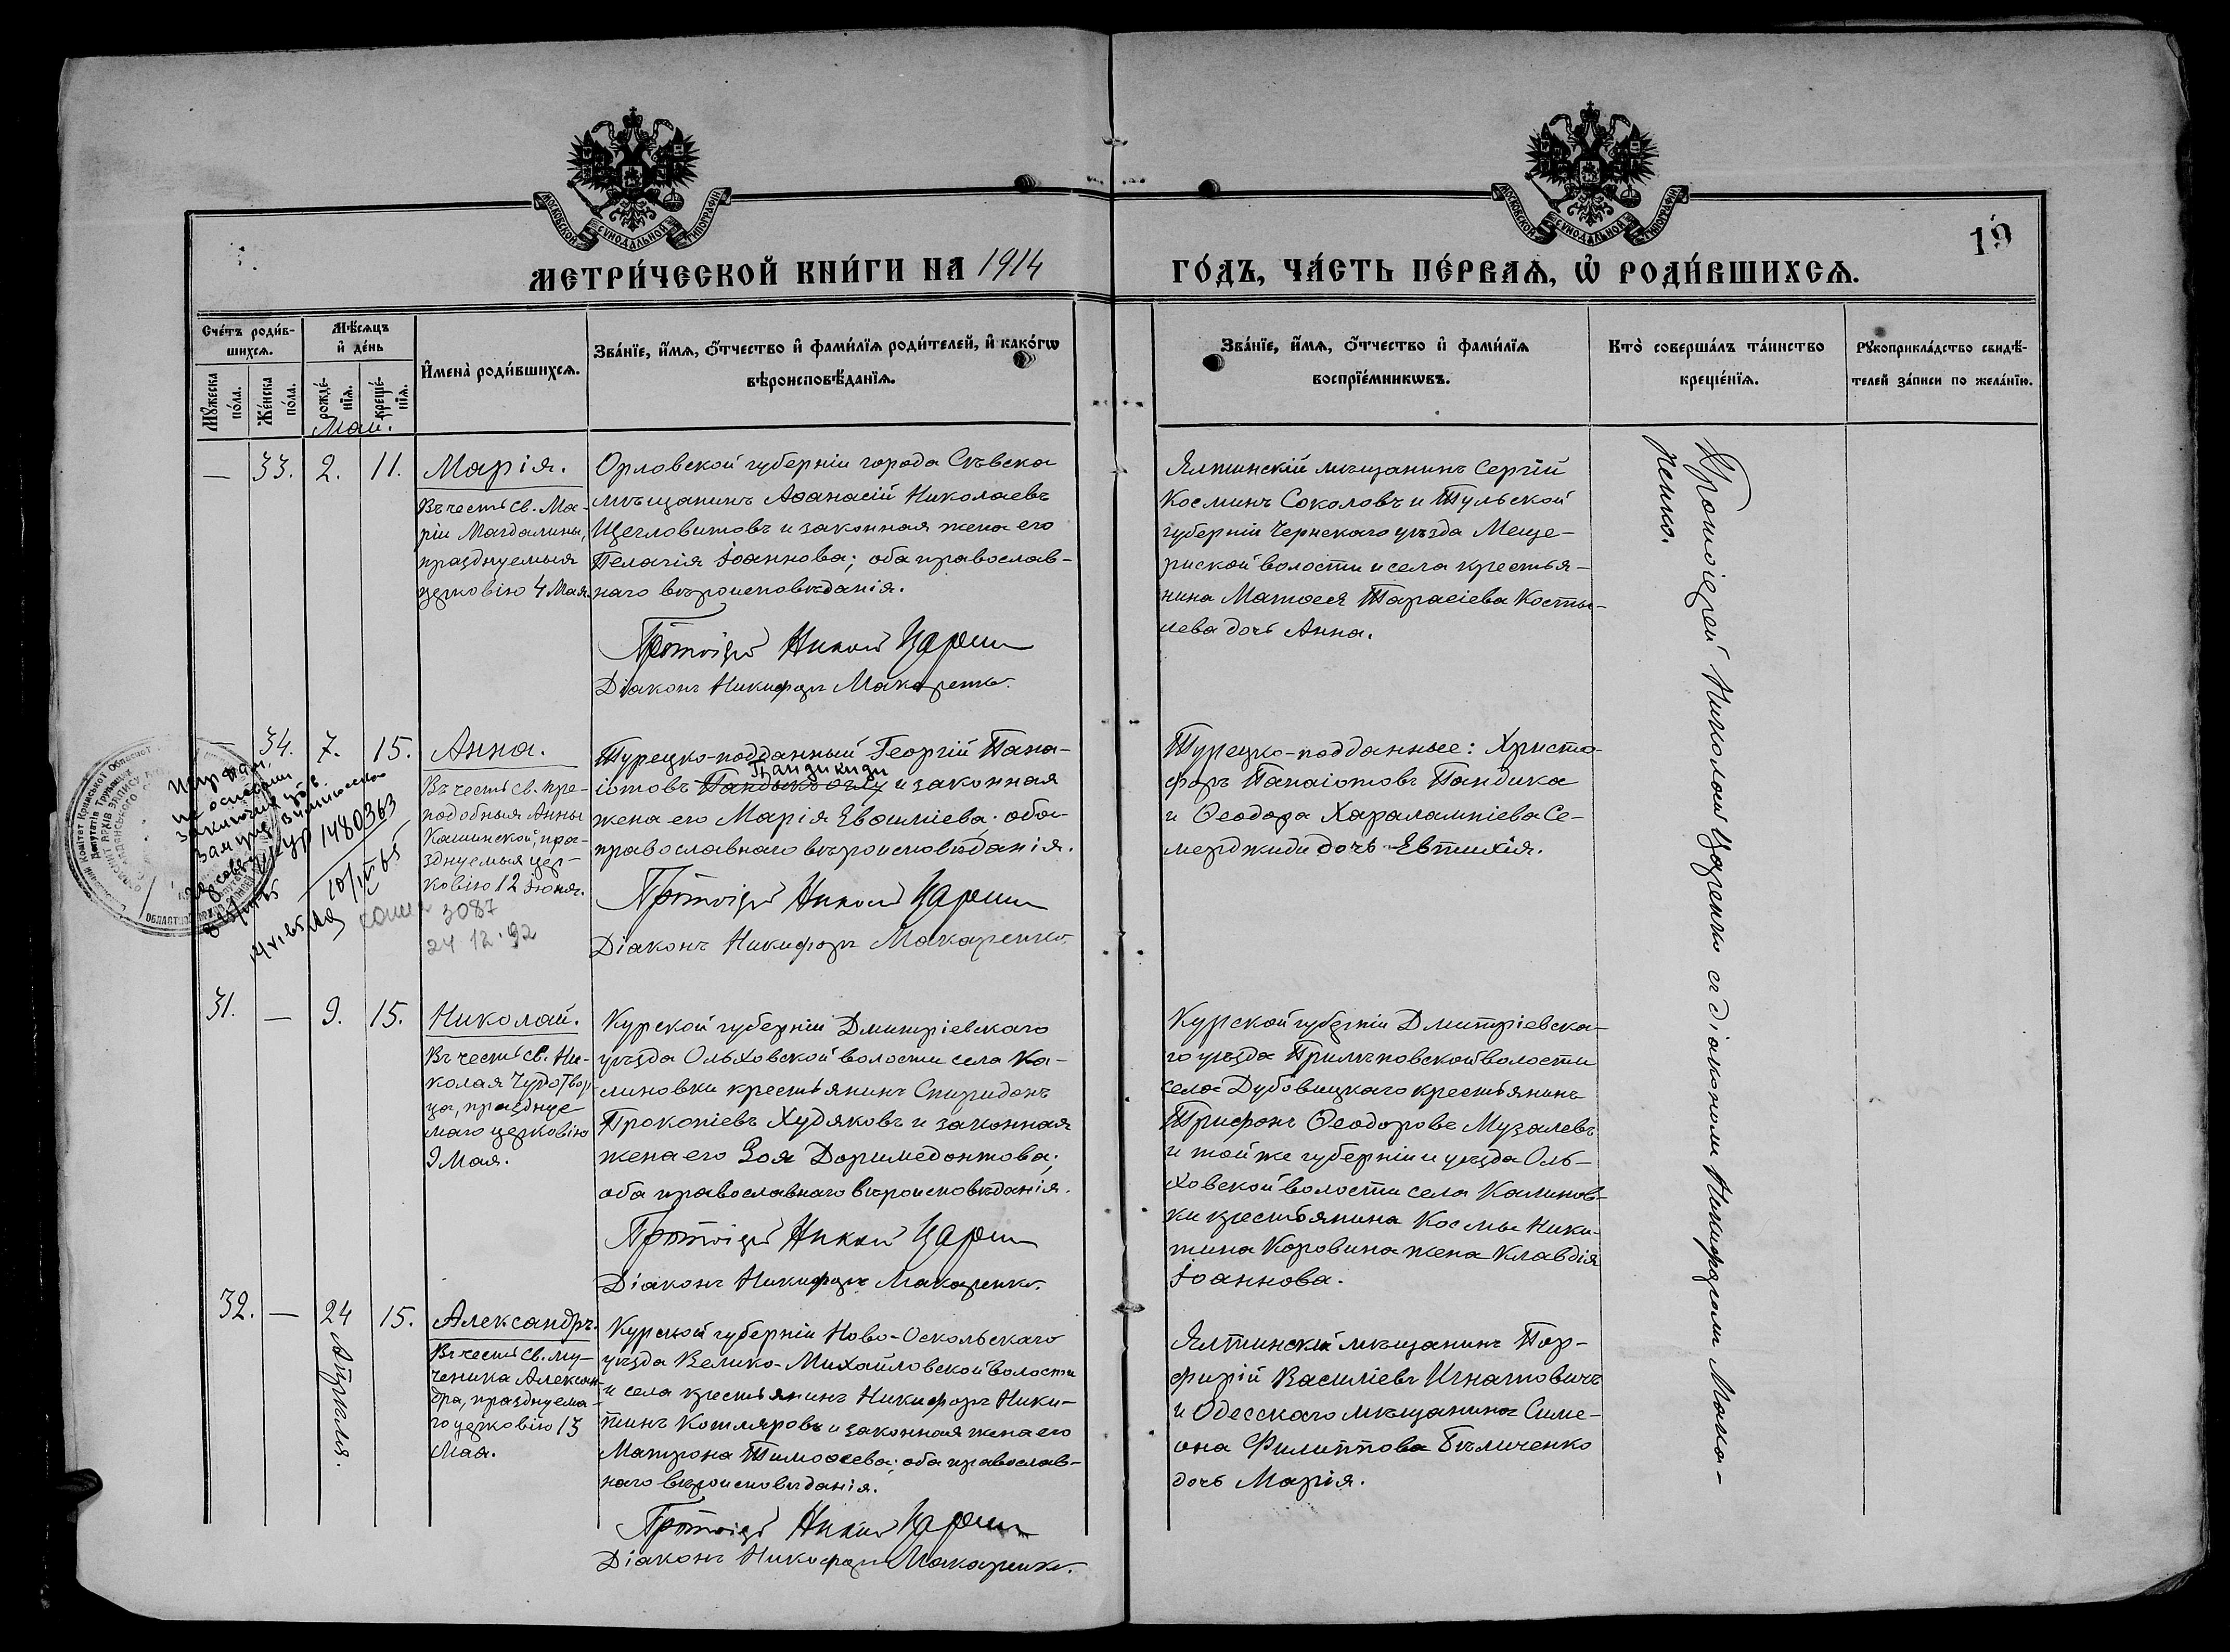 МОСКОВСКОЙ СѴНОДАЛЬНОЙ ТИПОГРАФІИ
МОСКОВСКОЙ СѴНОДАЛЬНОЙ ТИПОГРАФІИ
19
МЕТРИ́ЧЕСКОЙ КНИ́ГИ НА 1914
ГО́ДЪ, ЧА́СТЬ ПЕ́РВАѦ, Ѡ҆ РОДИ́ВШИХСѦ.
Сче́тъ роди́в-
шихсѧ.
Мѣ́сѧцъ
и҆ де́нь
Мꙋ́жеска
по́ла.
Же́нска
по́ла.
рожде́-
нїѧ.
креще́-
нїѧ.
И҆мена̀ роди́вшихсѧ.
Зва́нїе, и҆́мѧ, ѻ҆́тчество и҆ фами́лїѧ роди́телей, и҆ како́гѡ
вѣроисповѣ́данїѧ.
Зва́нїе, и҆́мѧ, ѻ҆́тчество и҆ фами́лїѧ
воспрїе́мникѡвъ.
Кто̀ соверша́лъ та́инство
креще́нїѧ.
Рꙋкоприкла́дство свидѣ́-
телей за́писи по жела́нїю.
Май.
— 33. 2. 11.
Марія.
Въ честь св. Ма-
ріи Магдалины,
празднуемыя
церковію 4 Мая.
Орловской губерніи города Съвска
мѣщанинъ Аѳанасій Николаевъ
Щегловитовъ и законная жена его
Пелагія Іоаннова; оба православ-
наго вѣроисповѣданія.
Протоіерей Николай Царенко
Діаконъ Никифоръ Макаренко.
Ялтинскій мѣщанинъ Сергій
Косминъ Соколовъ и Тульской
губерніи Чернскаго уѣзда Меще-
риской волости и села крестья-
нина Матѳея Тарасіева Косты-
лева дочь Анна.
Протоіерей Николай Царенко съ діакономъ Никифоромъ Мака-
ренко.
— 34. 7. 15.
Анна.
Въ честь св. пре-
подобныя Анны
Кашинской, пра-
зднуемыя цер-
ковію 12 Іюня.
Турецко-подданный Георгій Пана-
Пандикиди
іотовъ Пандыкъ-оглу и законная
жена его Марія Евѳиміева; оба
православнаго вѣроисповѣданія.
Протоіерей Николай Царенко
Діаконъ Никифоръ Макаренко.
Турецко-подданные: Христо-
форъ Панаіотовъ Пандика
и Ѳеодора Харалампіева Се-
мерджиди дочь Евтихія.
1480363
3087
24 12.92
31. — 9. 15.
Николай.
Въ честь св. Ни-
колая Чудотвор-
ца, праздную
маго церковію
9 Мая.
Курской губерніи Дмитріевскаго
уѣзда Ольховской волости села Ка-
линовки крестьянинъ Спиридонъ
Прокопіевъ Худяковъ и законная
жена его Зоя Доримедонтова;
оба православнаго вѣроисповѣданія.
Протоіерей Николай Царенко
Діаконъ Никифоръ Макаренко.
Курской губерніи Дмитріевска-
го уѣзда волости
села Дубовицкаго крестьянинъ
Трифонъ Ѳеодоровъ Музалевъ
и той же губерніи и уѣзда Оль-
ховской волости села Калинов-
ки крестьянина Космы Ники-
тина Коровина жена Клавдія
Іоаннова.
32. — 24 Апрѣля. 15.
Александръ.
Въ честь св. му-
ченика Алексан-
дра, празднуема-
го церковію 13
Мая.
Курской губерніи Ново-Оскольскаго
уѣзда Велико-Михайловской волости
и села крестьянинъ Никифоръ Ники-
тинъ Котляровъ и законная жена его
Матрона Тимоѳеева; оба православ-
наго вѣроисповѣданія.
Протоіерей Николай Царенко
Діаконъ Никифоръ Макаренко.
Ялтинскій мѣщанинъ Пор-
фирій Василіевъ Игнатовичъ
и Одесскаго мѣщанина Симе-
она Филиппова Бѣличенко
дочь Марія.